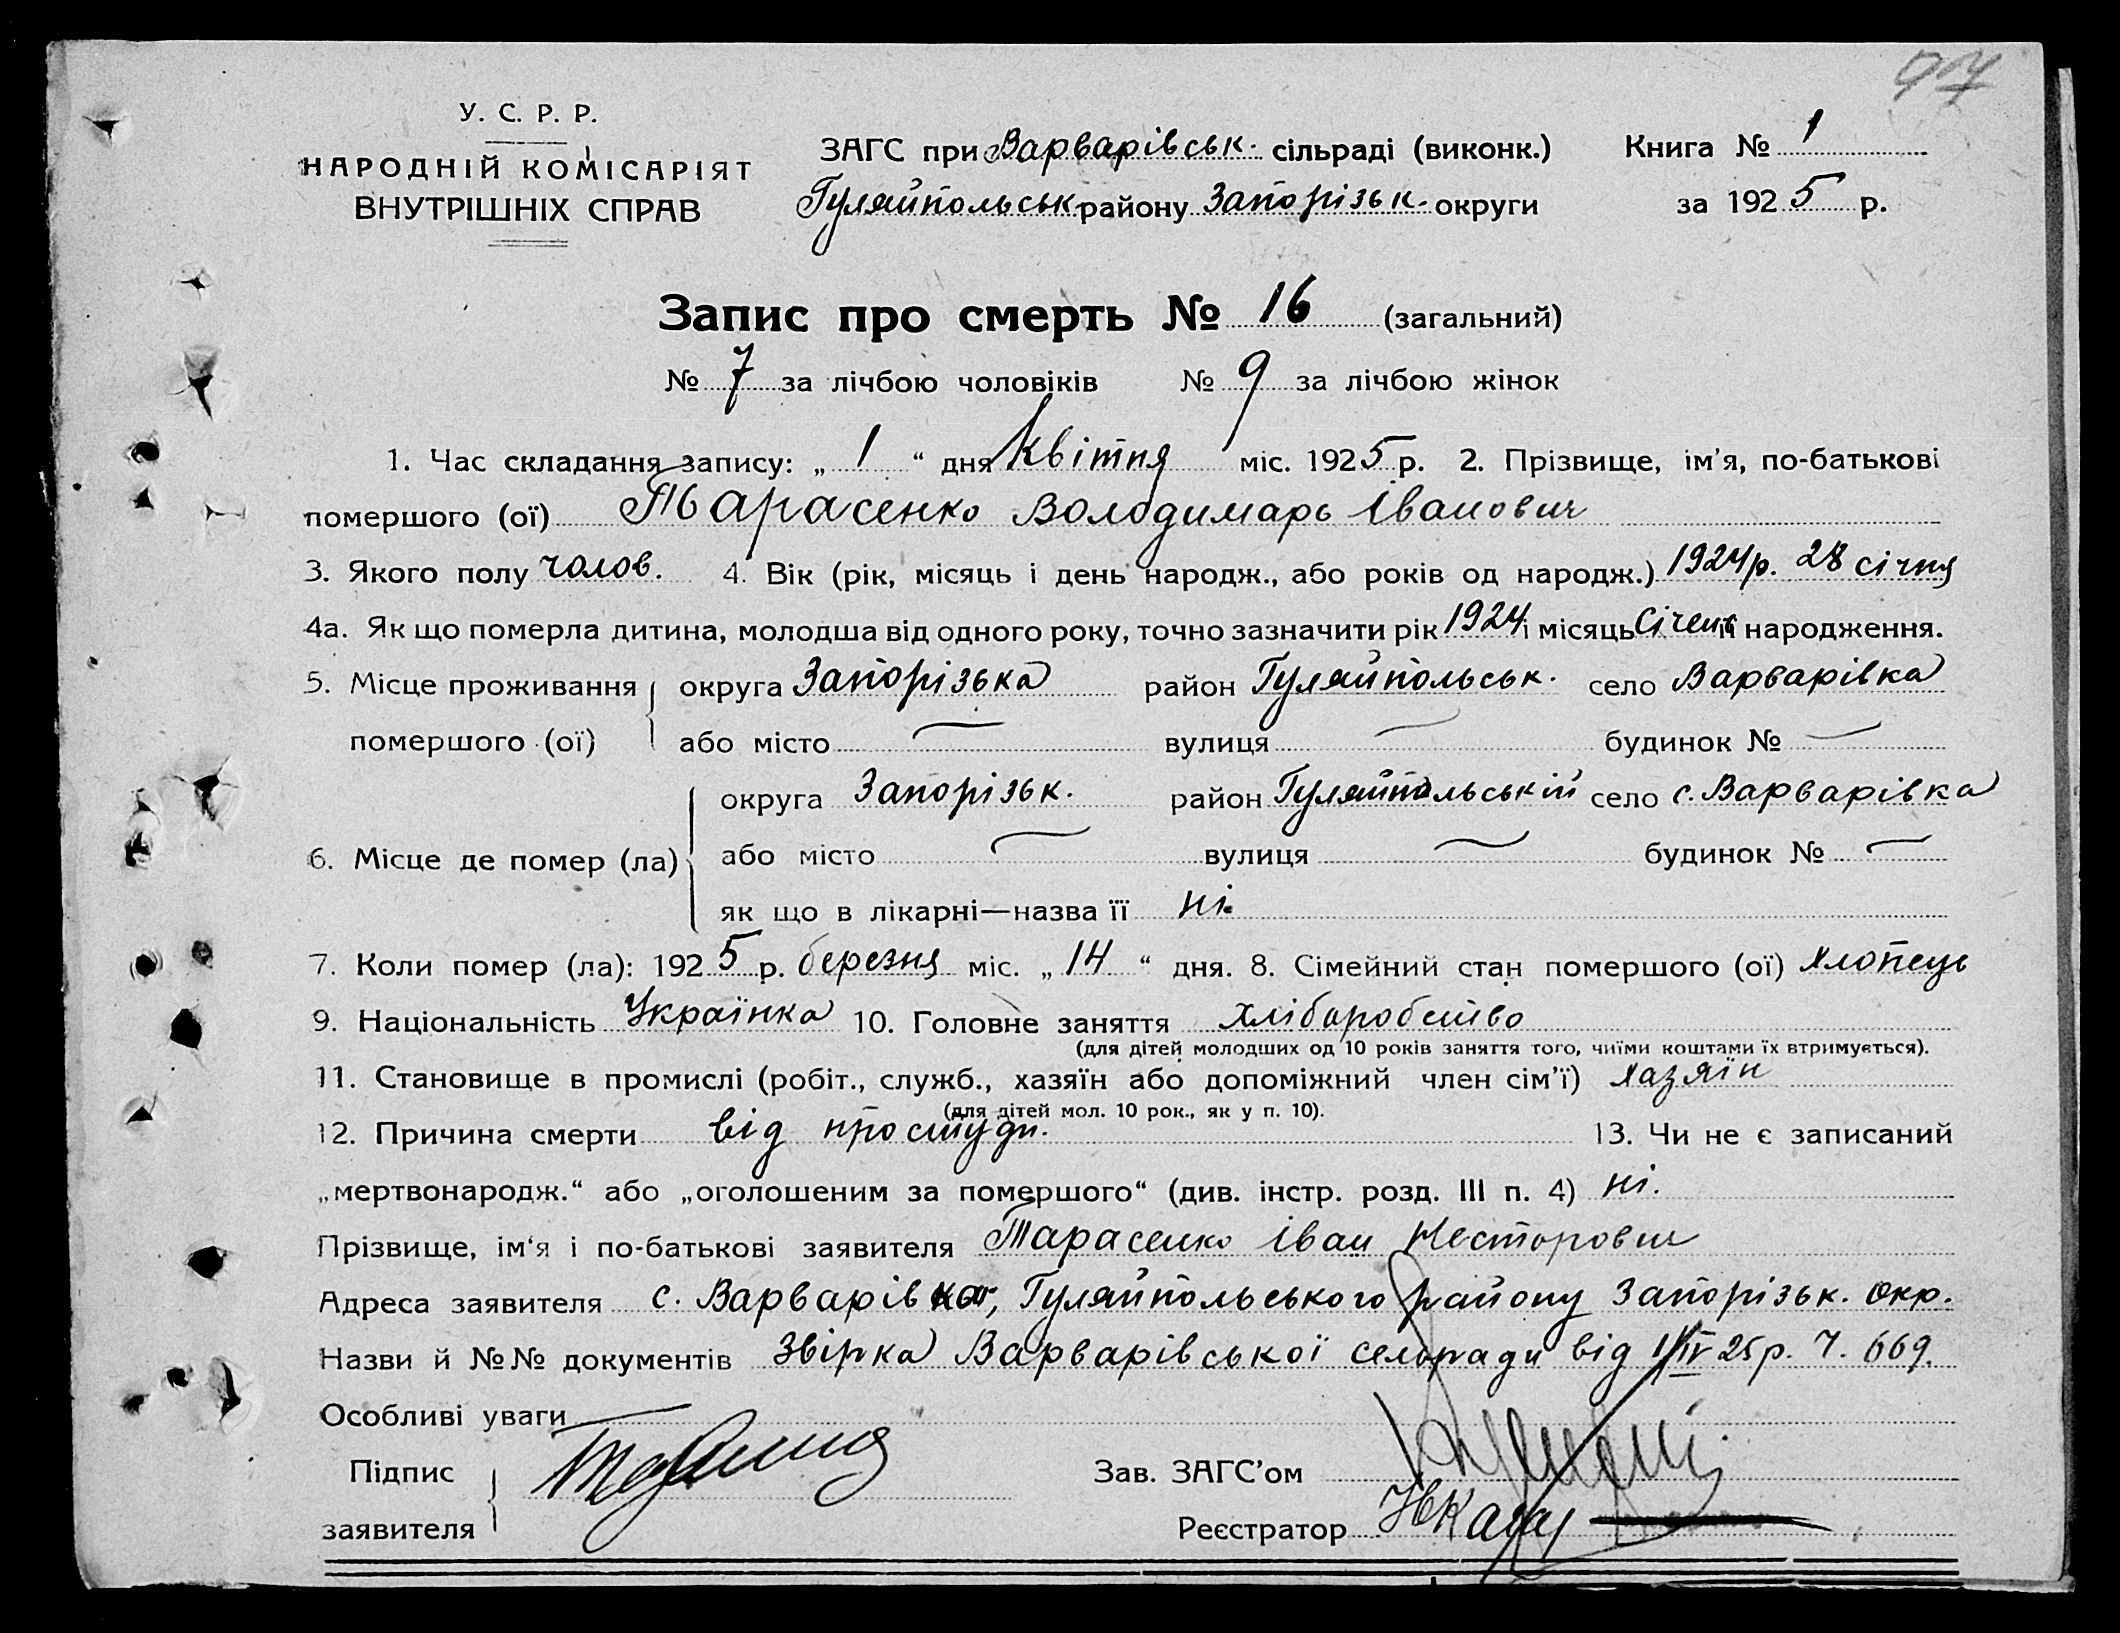 97
У. С. Р. Р.
НАРОДНІЙ КОМІСАРІЯТ
ВНУТРІШНІХ СПРАВ
ЗАГС при Варварівськ. сільраді (виконк.) Книга № 1
Гуляйпольськ району Запорізьк. округи за 1925 р.
Запис про смерть № 16 (загальний)
№ 7 за лічбою чоловіків № 9 за лічбою жінок
1. Час складання запису: „ 1 “ дня Квітня міс. 1925 р. 2. Прізвище, ім'я, по-батькові
помершого (ої) Тарасенко Володимарь Іванович
3. Якого полу чолов. 4. Вік (рік, місяць і день народж., або років од народж.) 1924 р. 28 січня
4а. Як що померла дитина, молодша від одного року, точно зазначити рік 1924 і місяць Січень її народження.
5. Місце проживання округа Запорізька район Гуляйпольськ. село Варварівка
помершого (ої) або місто — вулиця — будинок № —
округа Запорізьк. район Гуляйпольській село с. Варварівка
6. Місце де помер (ла) або місто — вулиця — будинок № —
як що в лікарні—назва її ні.
7. Коли помер (ла): 1925 р. березня міс. „ 14 “ дня. 8. Сімейний стан помершого (ої) хлопець
9. Національність Українка 10. Головне заняття хліборобство
(для дітей молодших од 10 років заняття того, чиїми коштами їх втримується).
11. Становище в промислі (робіт., служб., хазяїн або допоміжний член сім'ї) хазяїн
(для дітей мол. 10 рок., як у п. 10).
12. Причина смерти від простуди. 13. Чи не є записаний
„мертвонародж.“ або „оголошеним за помершого“ (див. інстр. розд. III п. 4) ні.
Прізвище, ім'я і по-батькові заявителя Тарасенко Іван Несторович
Адреса заявителя с. Варварівка, Гуляйпольського району Запорізьк. окр.
Назви й №№ документів Звірка Варварівської сельради від 1/IV 25 р. Ч. 669.
Особливі уваги
Підпис Зав. ЗАГС'ом
заявителя Реєстратор